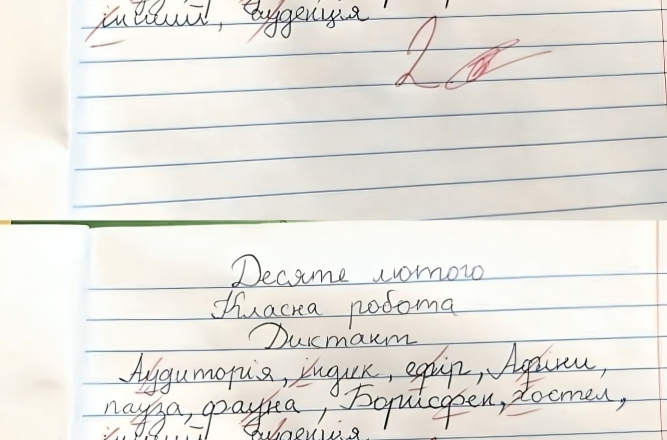 інший, аудієнція
2
Десяте лютого
Класна робота
Диктант
Аудиторія, індик, ефір, Афіни,
пауза, фауна, Борисфен, хостел,
інший, аудієнція